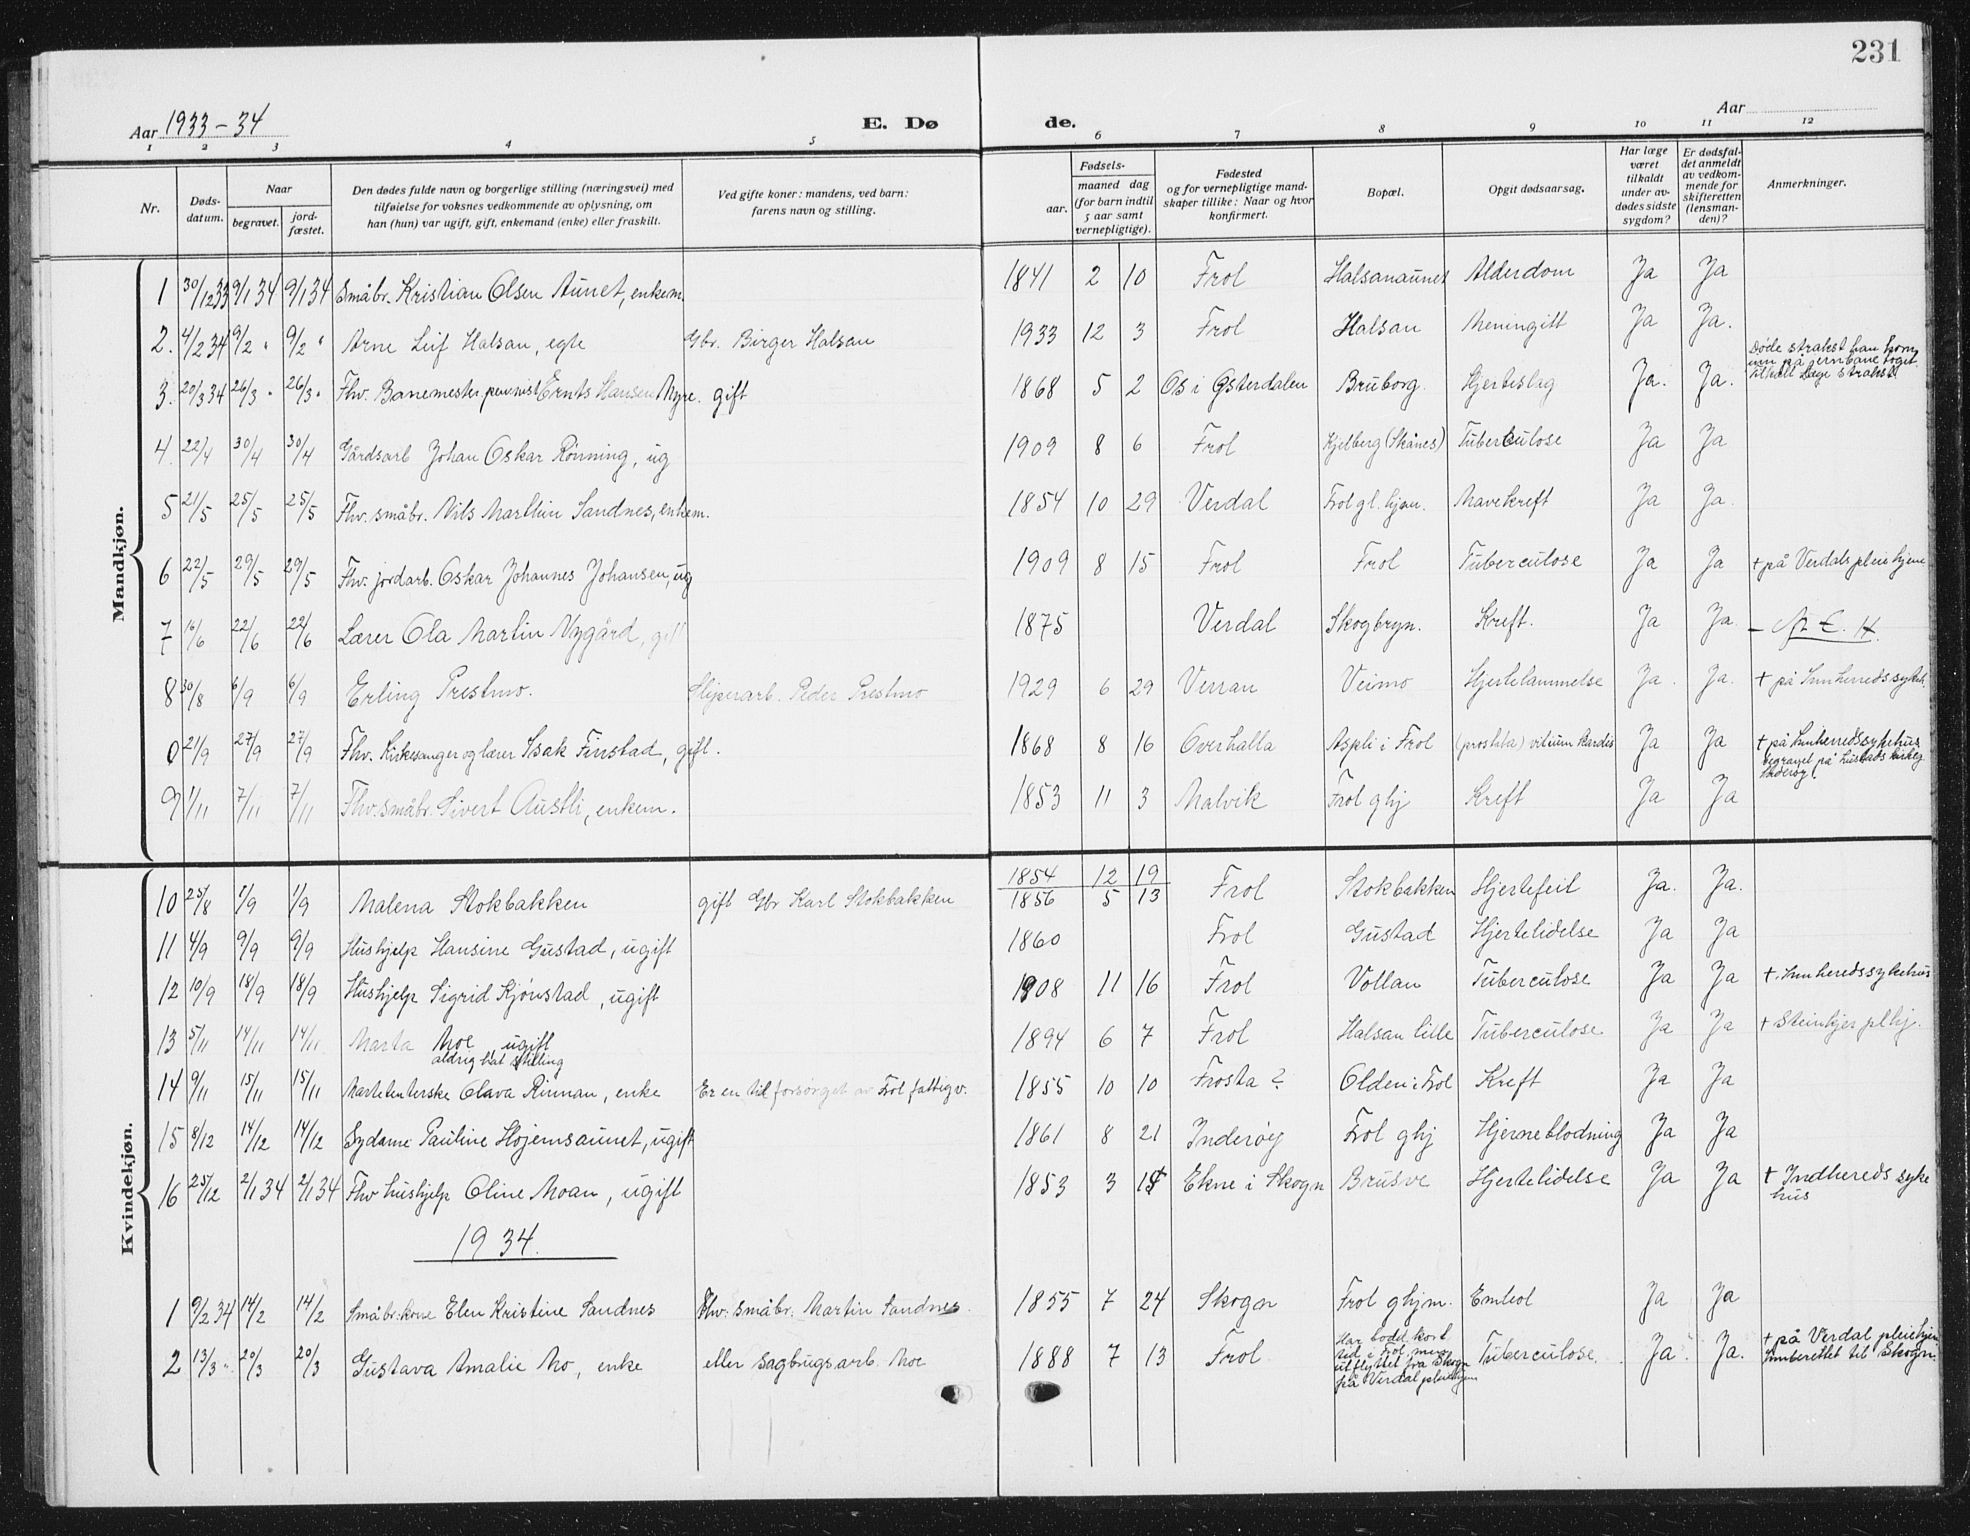 231
Aar 1933-34 E. Dø de. Aar
1 2 3 4 5 6 7 8 9 10 11 12
Nr. | Døds-datum. | Naar begravet. | jord-fæstet. | Den dødes fulde navn og borgerlige stilling (næringsvei) med tilføielse for voksnes vedkommende av oplysning, om han (hun) var ugift, gift, enkemand (enke) eller fraskilt. | Ved gifte koner: mandens, ved barn: farens navn og stilling. | Fødsels- aar. | maaned dag (for barn indtil 5 aar samt vernepligtige). | Fødested og for vernepligtige mandskaper tillike: Naar og hvor konfirmert. | Bopæl. | Opgit dødsaarsag. | Har læge været tilkaldt under avdødes sidste sygdom? | Er dødsfaldet anmeldt av vedkommende for skifteretten (lensmanden)? | Anmerkninger.
Mandkjøn.
1 30/12 33 9/1 34 9/1 34 Småbr. Kristian Olsen Aunet, enkem. 1841 2 10 Frol Halsanaunet Alderdom Ja Ja
2. 4/2 34 9/2 " 9/2 " Arne Leif Halsan, egte Gbr. Birger Halsan 1933 12 3 Frol Halsan Meningitt Ja Ja.
3. 20/3 34 26/3 " 26/3 " Fhv. Banemester, pensinist Ernts Hansen Myre. gift 1868 5 2 Os i Østerdalen Bruborg. Hjerteslag Ja. Ja. Døde strakst han kom inn på jernbane toget tilkalt læge strakst
4. 22/4 30/4 30/4 Gårdsarb Johan Oskar Rønning, ug 1909 8 6 Frol Kjelberg (Skånes) Tuberculose Ja Ja
5 21/5 25/5 25/5 Fhv. småbr. Nils Marthin Sandnes, enkem. 1854 10 29 Verdal Frol gl. hjem. Mavekreft Ja Ja.
6 22/5 29/5 29/5 Fhv. jordarb. Oskar Johannes Johansen, ug 1909 8 15 Frol Frol Tuberculose Ja Ja + på Verdals pleiehjem
7 16/6 22/6 22/6 Lærer Ola Martin Nygård, gift 1875 Verdal Skogbryn. Kreft. Ja Ja
8 30/8 6/9 6/9 Erling Prestmo. Sliperarb. Peder Prestmo 1929 6 29 Verran Veimo Hjertelammelse Ja. Ja. + på Innherreds sykeh.
0 21/9 27/9 27/9 Fhv. Kirkesanger og lærer Isak Finstad, gift. 1868 8 16 Overhalla Aspli i Frol (prostata) vitium kardis Ja Ja + på Innherreds sykehus begravet på Lustads kirkeg.
9 1/11 7/11 7/11 Fhv. småbr. Sivert Austli, enkem. 1853 11 3 Malvik Frol ghj Kreft Ja Ja
Kvindekjøn.
10 25/8 1/9 1/9 Malena Stokbakken gift Gbr Karl Stokbakken 1854 12 19 1856 5 13 Frol Stokbakken Hjertefeil Ja. Ja.
11 4/9 9/9 9/9 Hushjelp Hansine Gustad, ugift 1860 Frol Gustad Hjertelidelse Ja Ja
12 10/9 18/9 18/9 Hushjelp Sigrid Kjønstad, ugift 1908 11 16 Frol Vollan Tuberculose Ja Ja + Innheredssykehus
13 5/11 14/11 14/11 Marta Moe ugift aldrig hat stilling 1894 6 7 Frol Halsan lille Tuberculose Ja Ja + Steinkjer plhj.
14 9/11 15/11 15/11 Martetenterske Olava Rinnan, enke Er en tid forsørget av Frol fattigv. 1855 10 10 Frosta ? Olden i Frol Kreft Ja Ja
15 8/12 14/12 14/12 Sydame Pauline Højemsaunet, ugift 1861 8 21 Inderøy Frol ghj Hjerneblodning Ja Ja
16 25/12 2/1 34 2/1 34 Fhv hushjelp Oline Moan, ugift 1853 3 Ekne i Skogn Brusve Hjertelidelse Ja Ja + Indhereds sykehus
1934.
1 9/2 34 14/2 14/2 Småbr.kone Elen Kristine Sandnes Fhv. småbr. Martin Sandnes. 1855 7 24 Skogn Frol ghjm. Embol Ja Ja
2 13/3 " 20/3 20/3 Gustava Amalie Mo, enke eller sagbrugsarb. Moe 1888 7 13 Frol Har bodd kort tid i Frol men utflyttet fra Skogn på Verdal pleiehjem Tuberculose. Ja. Ja. + på Verdal pleiehjem Innberettet til Skogn.